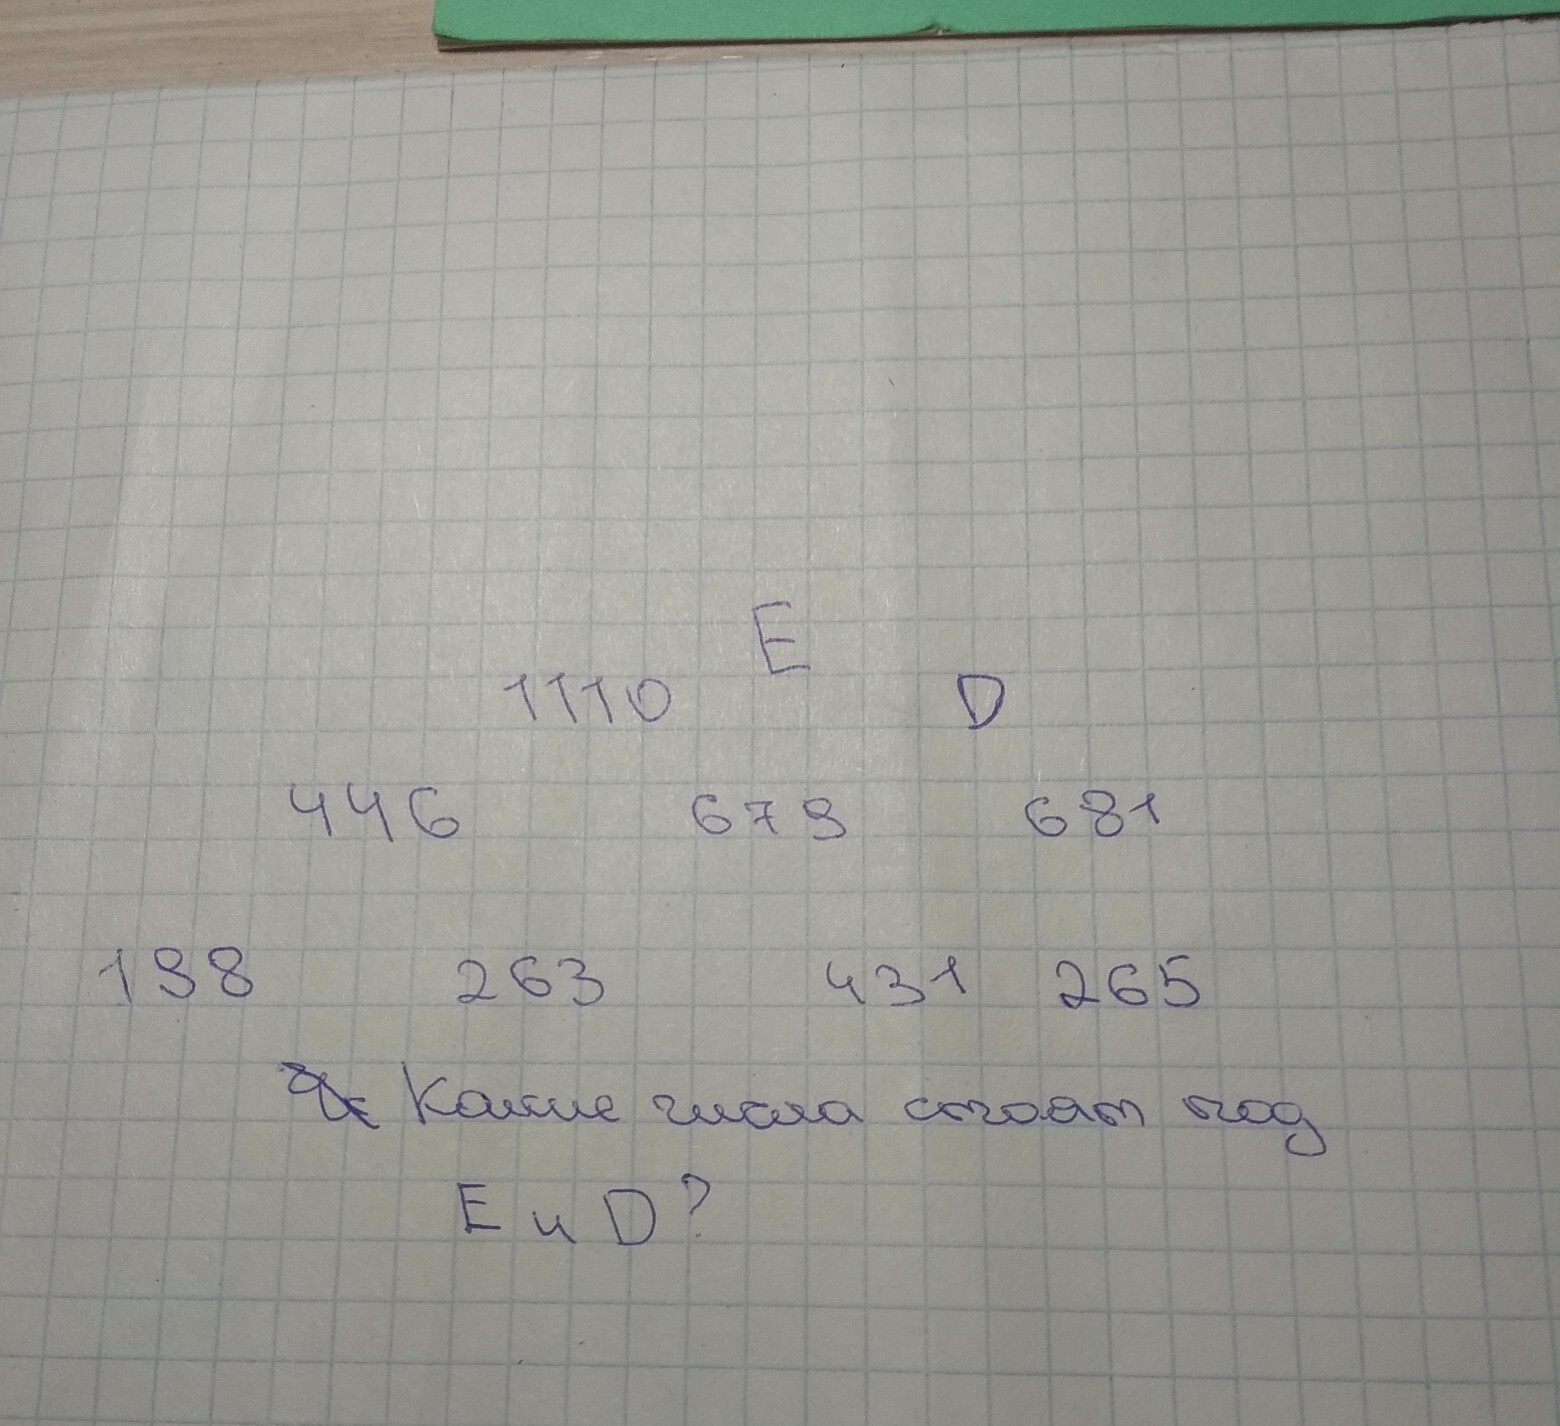 E
1110 D
446 679 681
198 263 431 265
Какие числа стоят под
E и D?